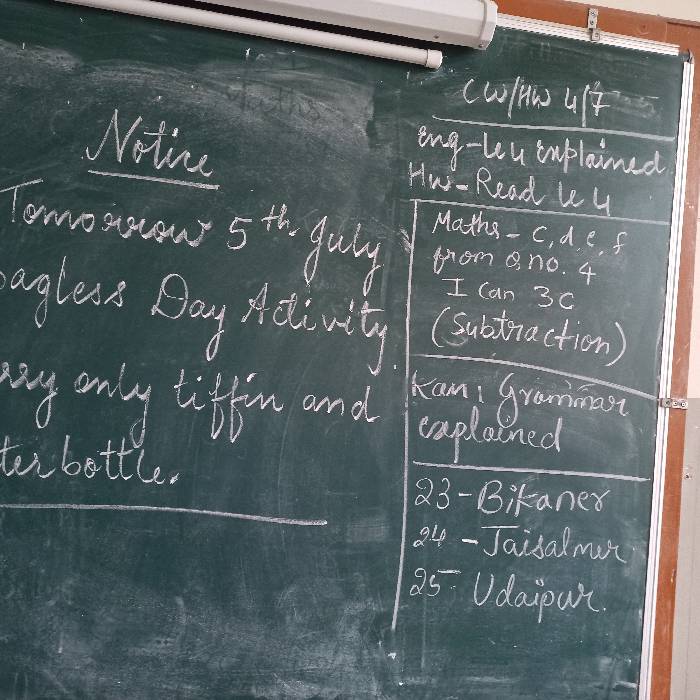 Notice
Tomorrow 5th July
agless Day Activity.
rry only tiffin and
ter bottle.
CW/HW 4/7
Eng-Le 4 explained
Hw-Read le 4
Maths - c, d e, f
from Q no. 4
I can 3c
(Subtraction)
Kan: Grammar
explained
23-Bikaner
24 -Jaisalmer
25- Udaipur.